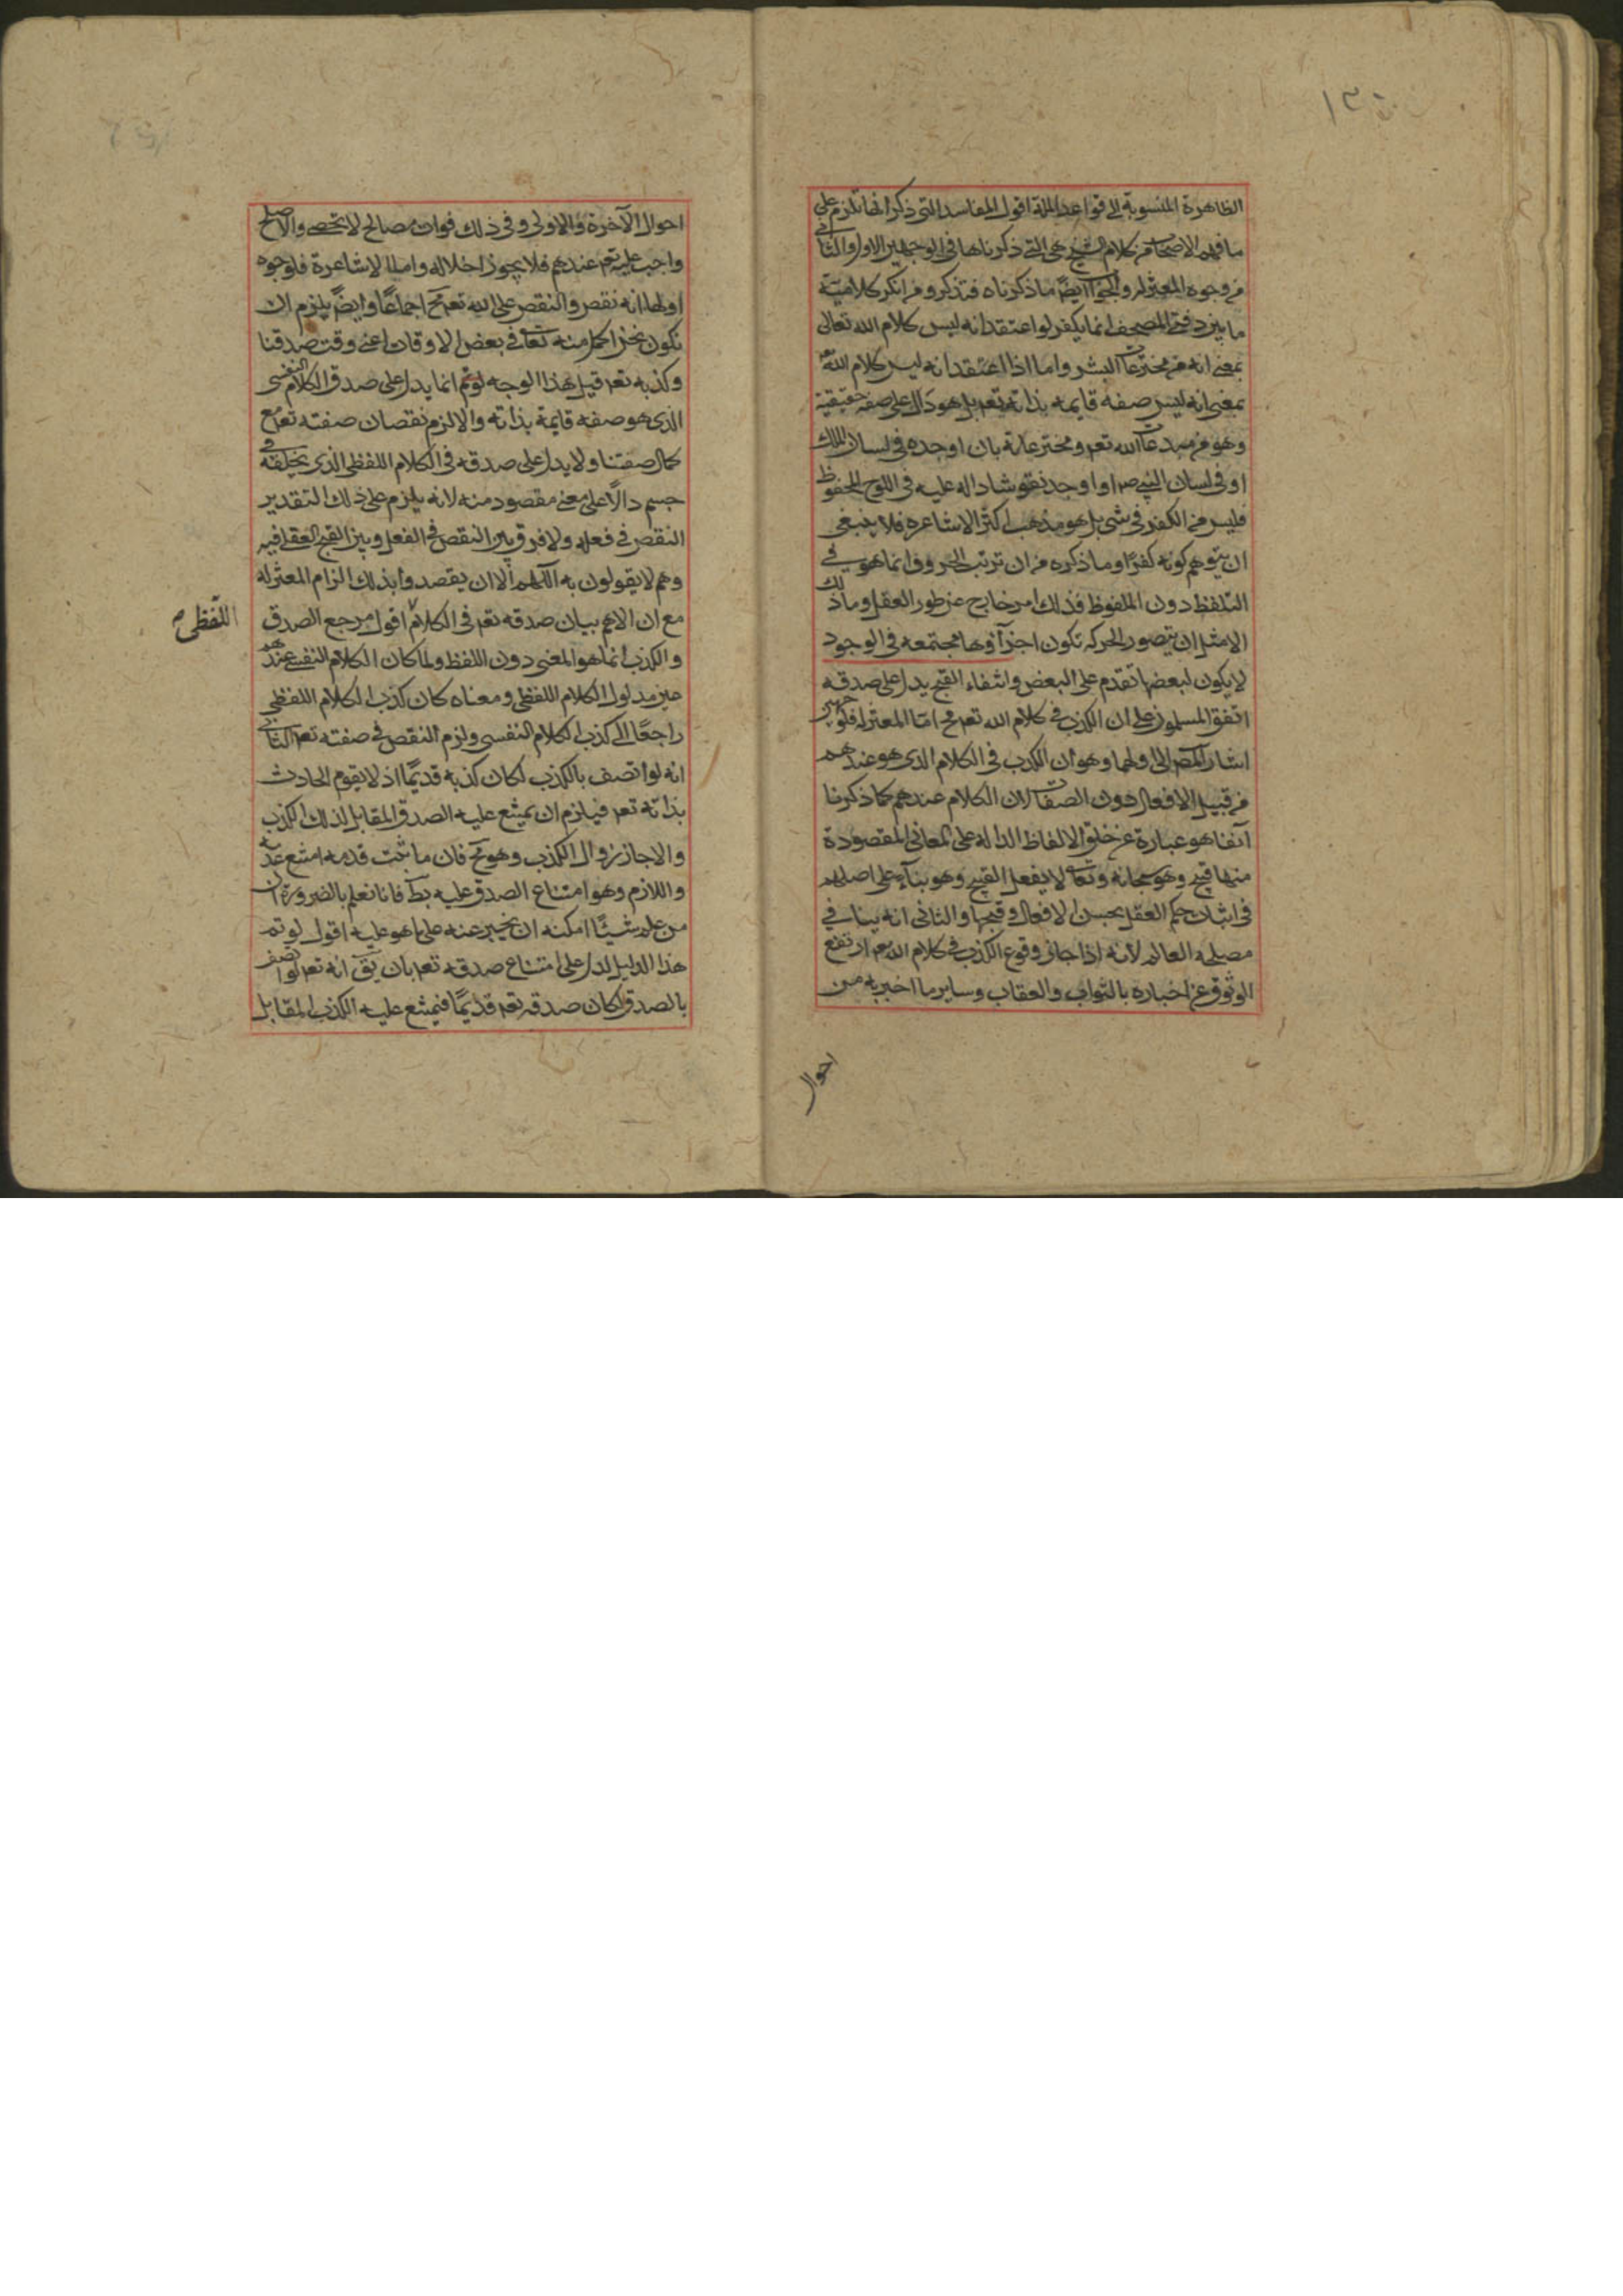 ١٣٠
الظاهرة المنسوبة الى قواعد الملة اقول المفاسد التى ذكر انها تلزم على
ما فهمه الاصحاب من كلام الشيخ هى التى ذكرناها فى الوجهين الاول والثانى
من وجوه المعتزله والجواب ايضا ما ذكرناه فتذكر ومن انكر كلامية
ما بين دفتى المصحف انما يكفر لو اعتقد انه ليس كلام الله تعالى
بمعنى انه من مخترعات البشر واما اذا اعتقد انه ليس كلام الله
بمعنى انه ليس صفه قايمه بذاته تعه بل هو دال على صفه حقيقية
وهو من مبدعات الله تعه ومخترعاته بان اوجده فى لسان الملك
او فى لسان النبى صه او اوجد نقوشا داله عليه فى اللوح المحفوظ
فليس من الكفر فى شى بل هو مذهب اكثر الاشاعره فلا ينبغى
ان يتوهم كونه كفرا وما ذكره من ان ترتب الحروف انما هو فى
التلفظ دون الملفوظ فذلك امر خارج عن طور العقل وما ذلك
الا مثل ان يتصور الحركه تكون اجزاؤها مجتمعه فى الوجود
لا يكون لبعضها تقدم على البعض وانتفاء القبح يدل على صدقه
اتفق المسلمون على ان الكذب فى كلام الله تعه مح اما المعتزله فلوجهين
اشار المصـ الى اولهما وهو ان الكذب فى الكلام الذى هو عندهم
من قبيل الافعال دون الصفات لان الكلام عندهم كما ذكرنا
آنفا هو عبارة عن خلق الالفاظ الداله على المعانى المقصودة
منها قبيح وهو سبحانه وتعالى لا يفعل القبيح وهو بناء على اصلهم
فى اثبات حكم العقل بحسن الافعال وقبحها والثانى انه ينافى
مصلحه العالم لانه اذا جاز وقوع الكذب فى كلام الله تعه ارتفع
الوثوق عن اخباره بالثواب والعقاب وساير ما اخبر به من
احوال
احوال الآخرة والاولى وفى ذلك فوات مصالح لا تحصى والاصلح
واجب عليه تعه عندهم فلا يجوز اخلاله واما الاشاعرة فلوجوه
اولها انه نقص والنقص على الله تعه مح اجماعا وايضا يلزم ان
نكون نحن اكمل منه تعالى فى بعض الاوقات اعنى وقت صدقنا
وكذبه تعه قيل هذا الوجه لو تم انما يدل على صدق الكلام النفسى
الذى هو صفه قايمة بذاته والا لزم نقصان صفته تعه مع
كمال صفتنا ولا يدل على صدقه فى الكلام اللفظى الذى يخلقه فى
جسم دالا على معنى مقصود منه لانه يلزم على ذلك التقدير
النقص فى فعله ولا فرق بين النقص فى الفعل وبين القبح العقلى فيه
وهم لا يقولون به اللهم الا ان يقصدوا بذلك الزام المعتزله
مع ان الاهم بيان صدقه تعه فى الكلام اقول مرجع الصدق
اللفظى
والكذب انما هو المعنى دون اللفظ ولما كان الكلام النفسى عندهم
عين مدلول الكلام اللفظى ومعناه كان كذب الكلام اللفظى
راجعا الى كذب الكلام النفسى ولزم النقص فى صفته تعه الثانى
انه لو اتصف بالكذب لكان كذبه قديما اذ لا يقوم الحادث
بذاته تعه فيلزم ان يمتنع عليه الصدق المقابل لذلك الكذب
والا جاز زوال الكذب وهو مح فان ما ثبت قدمه امتنع عدمه
واللازم وهو امتناع الصدق عليه بط فانا نعلم بالضرورة ان
من علم شيئا امكنه ان يخبر عنه على ما هو عليه اقول لو تم
هذا الدليل لدل على امتناع صدقه تعه بان يق انه تعه لو اتصف
بالصدق لكان صدقه تعه قديما فيمتنع عليه الكذب المقابل